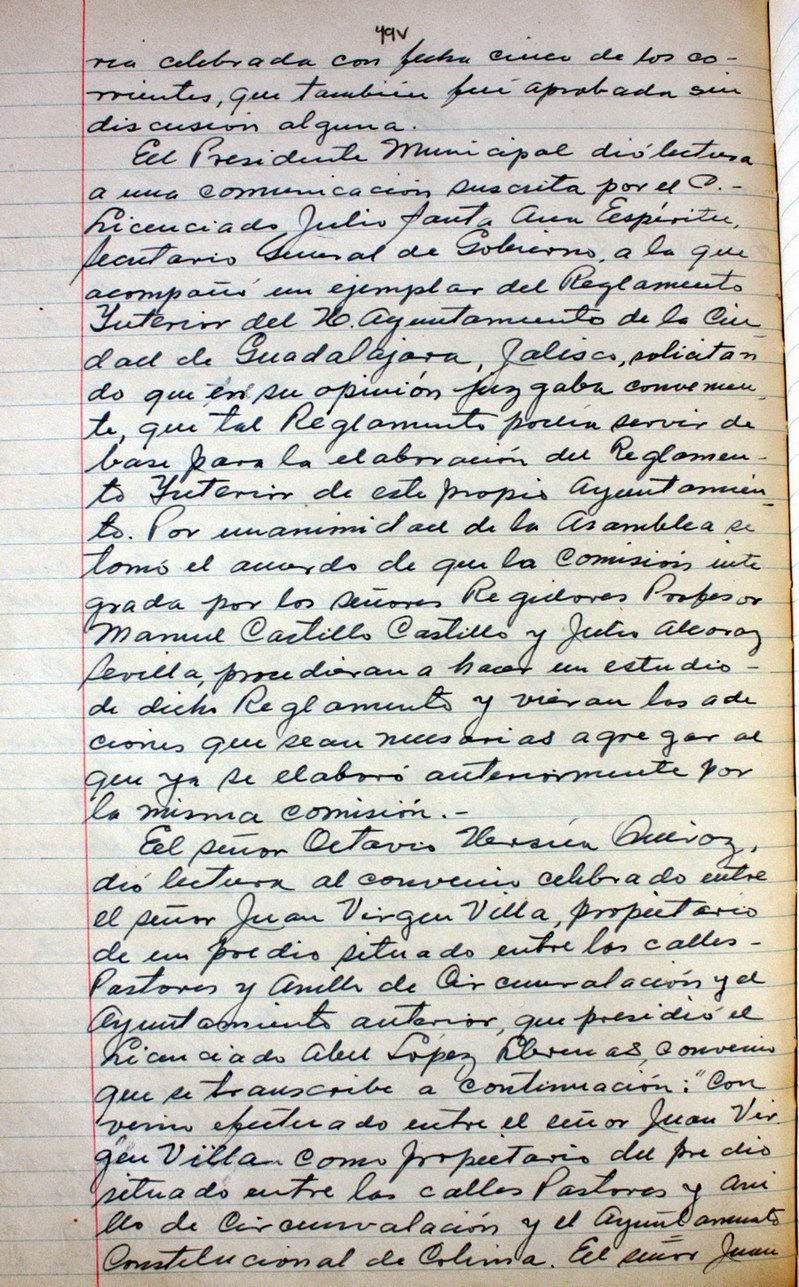 49v
ria celebrada con fecha cinco de los co-
rrientes, que también fué aprobada sin
discusión alguna.
El Presidente Municipal dió lectura
a una comunicación suscrita por el C.-
Licenciado Julio Santa Ana Espíritu,
Secretario General de Gobierno, a la que
acompañó un ejemplar del Reglamento
Interior del H. Ayuntamiento de la Ciu
dad de Guadalajara, Jalisco, solicitan
do que en su opinión juzgaba convenien-
te, que tal Reglamento podía servir de
base para la elaboración del Reglamen-
to Interior de este propio Ayuntamien-
to. Por unanimidad de la Asamblea se
tomó el acuerdo de que la Comisión inte
grada por los señores Regidores Profesor
Manuel Castillo Castillo y Julio Alcaraz
Sevilla, procedieran a hacer un estudio-
de dicho Reglamento y vieran las adi
ciones que sean necesarias agregar al
que ya se elaboró anteriormente por
la misma comisión.-
El señor Octavio
dió lectura al convenio celebrado entre
el señor Juan Virgen Villa, propietario
de un predio situado entre las calles-
Pastores y Anillo de Circunvalación y el
Ayuntamiento anterior, que presidió el
Licenciado Abel López Llerenas, convenio
que se transcribe a continuación: "Con
venio efectuado entre el señor Juan Vir
gen Villa como propietario del predio
situado entre las calles Pastores y Ani
llo de Circunvalación y el Ayuntamiento
Constitucional de Colima. El señor Juan